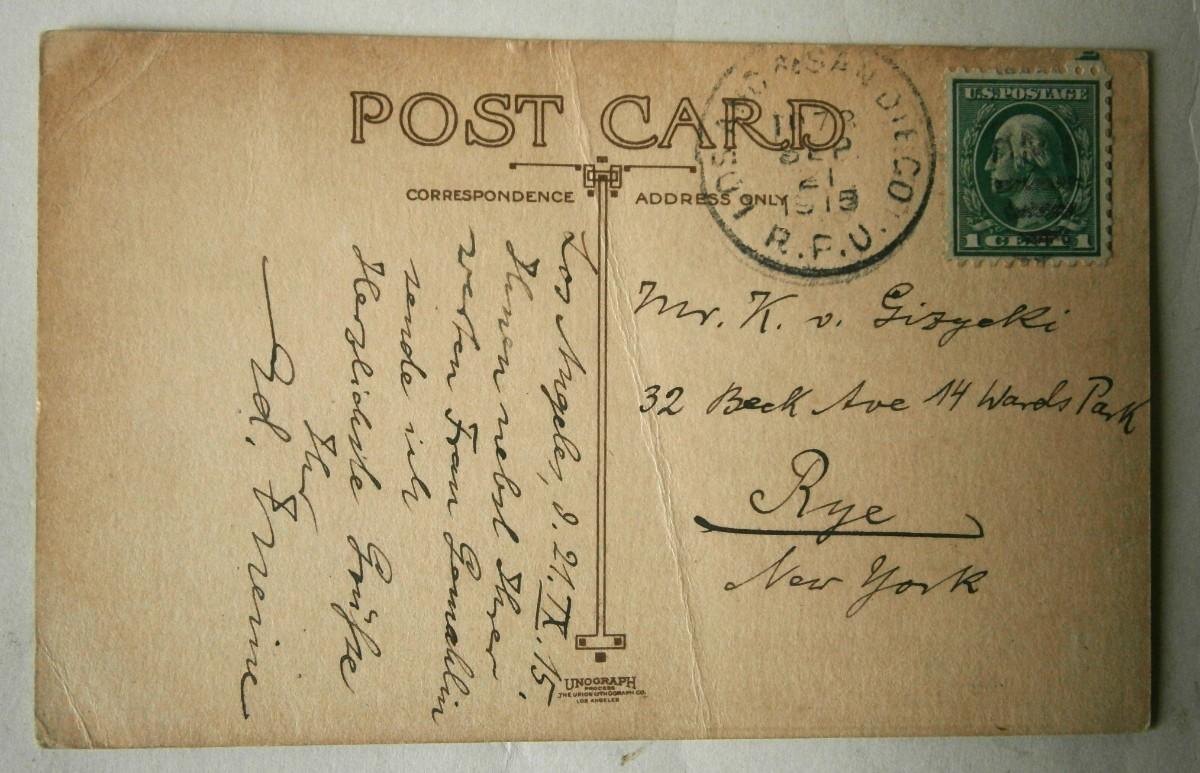 POST CARD
CORRESPONDENCE
ADDRESS ONLY
LOS ANG & SAN DIEGO
SEP
21
1915
R.P.O.
U.S. POSTAGE
1 CENT 1
Los Angeles, d. 21. IX. 15.
Ihnen nebst Ihrer
werten Frau Gemahlin
sende ich
Herzlichste Grüsse
Ihr
Ed.
Mr. K. v. Gizycki
32 Beck Ave 14 Wards Park
Rye
New York
UNOGRAPH
PROCESS
THE UNION LITHOGRAPH CO.
LOS ANGELES